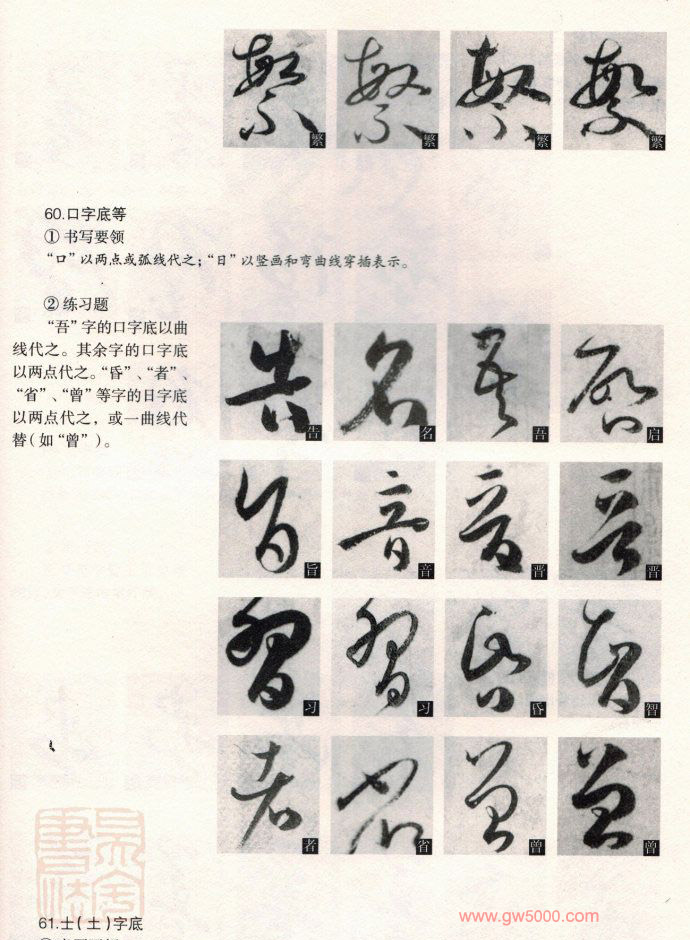 繁 繁 繁 繁
60.口字底等
①书写要领
“口”以两点或弧线代之；“日”以竖画和弯曲线穿插表示。
②练习题
“吾”字的口字底以曲
线代之。其余字的口字底
以两点代之。“昏”、“者”、
“省”、“曾”等字的日字底
以两点代之，或一曲线代
替（如“曾”）。
告 名 吾 启
旨 音 晋 晋
习 习 昏 智
者 省 曾 曾
61.士（土）字底
www.gw5000.com